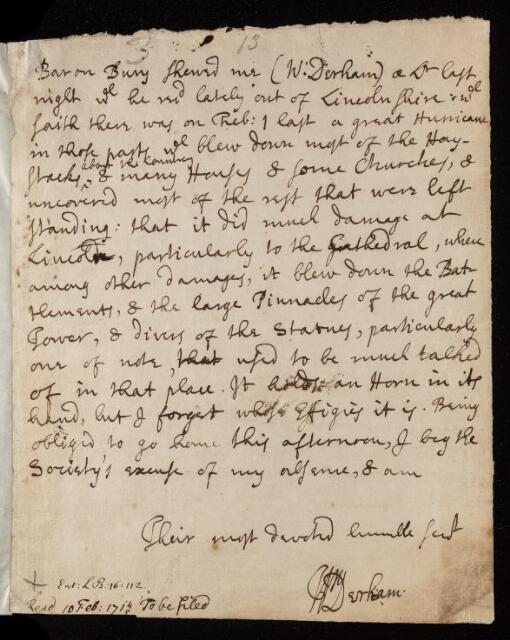 3 13
Baron Bury shewed me (W. Derham) a Lr last
night wch he recd lately out of Lincolnshire wch
saith there was on Feb: 1 last a great Hurricane
in those parts wch blew down most of the Hay-
about the Country
stacks, & many Houses & some Churches, &
uncovered most of the rest that were left
standing: that it did much damage at
Lincoln, particularly to the Cathedral, where
among other damages, it blew down the Bat-
tlements, & the large Pinnacles of the great
Tower, & divers of the Statues, particularly
one of note, that used to be much talked
of in that place. It holds an Horn in its
hand, but I forget whose Effigies it is. Being
obliged to go home this afternoon, I beg the
Society's excuse of my absence, & am
Their most devoted humble servt
Wm Derham.
Ent: L.B. 16. 112.
Read 10 Feb: 171 To be filed